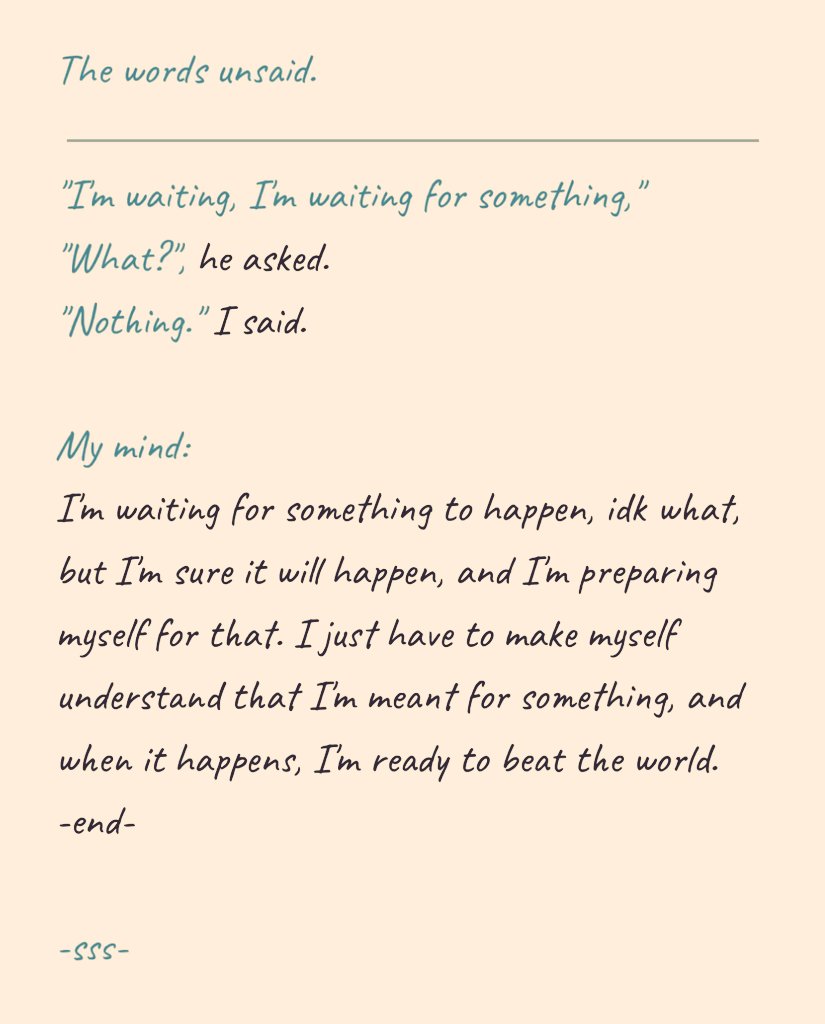 The words unsaid.
"I'm waiting, I'm waiting for something,"
"What?", he asked.
"Nothing." I said.
My mind:
I'm waiting for something to happen, idk what,
but I'm sure it will happen, and I'm preparing
myself for that. I just have to make myself
understand that I'm meant for something, and
when it happens, I'm ready to beat the world.
-end-
-sss-